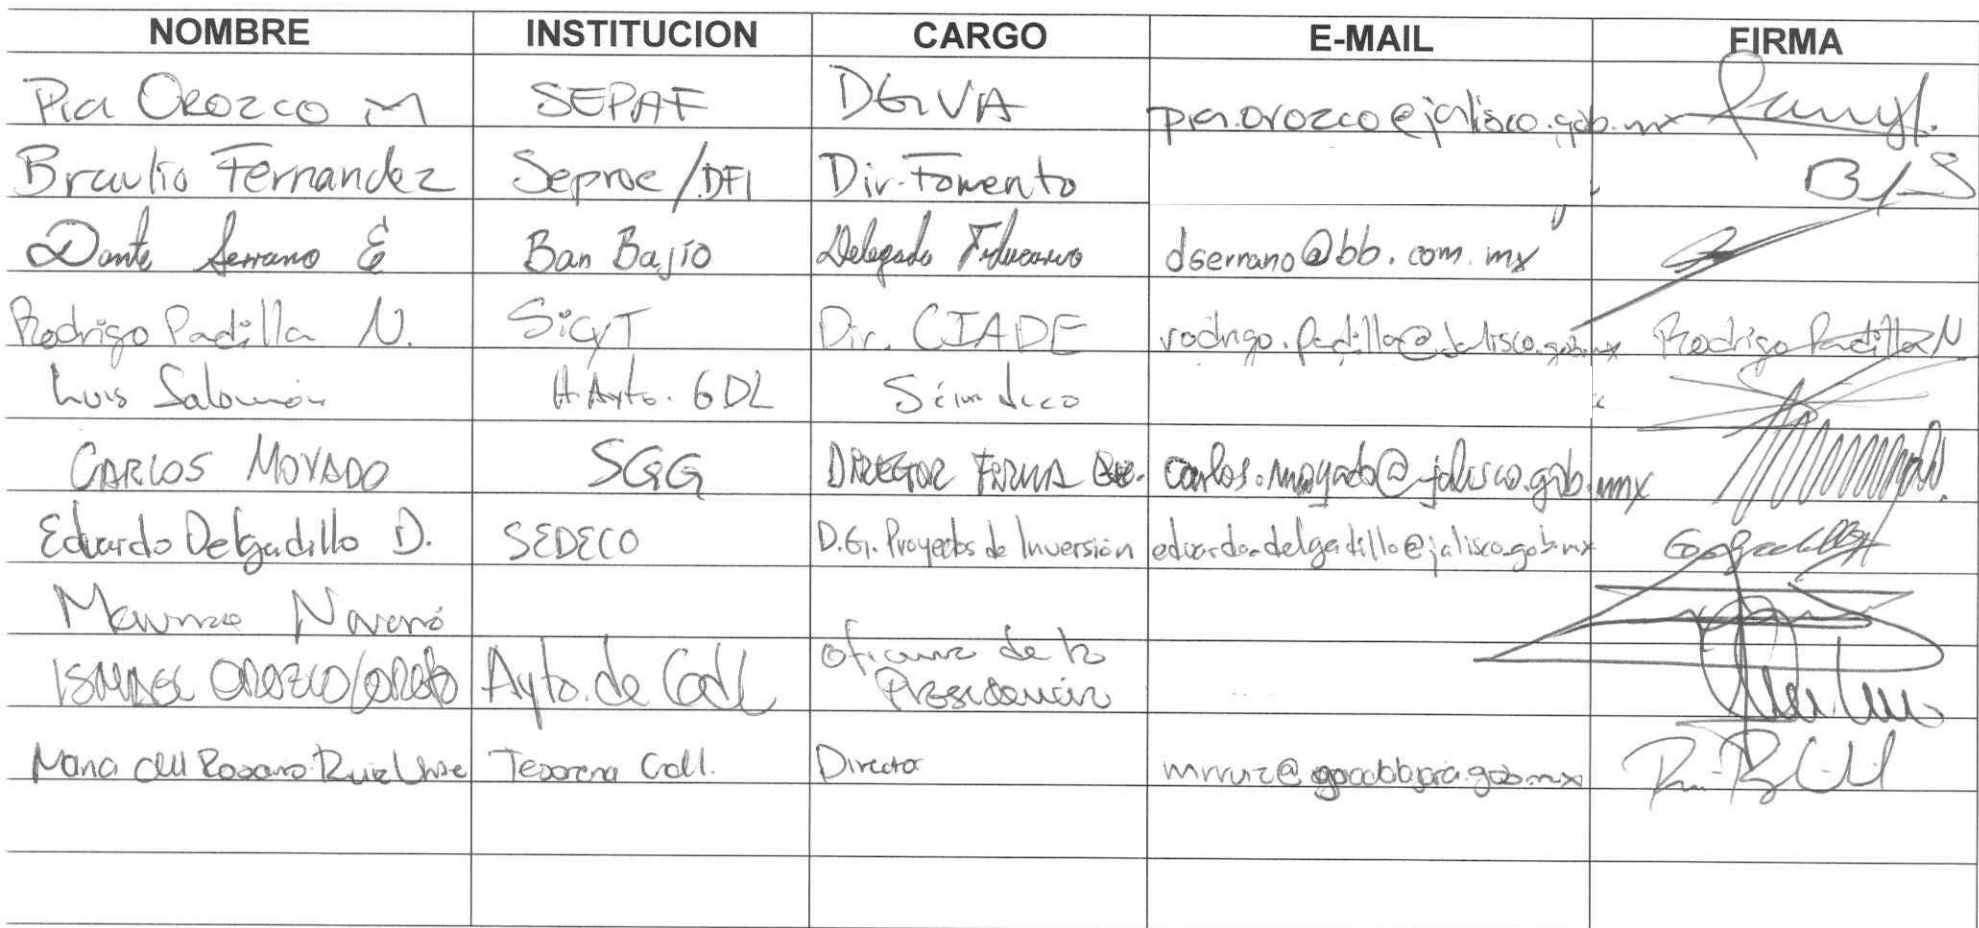 NOMBRE INSTITUCION CARGO E-MAIL FIRMA
Pia Orozco M SEPAF DGVA pia.orozco@jalisco.gob.mx
Braulio Fernandez Seproe /DFI Dir. Fomento
Dante Serrano E Ban Bajío Delegado Fiduciario dserrano@bb.com.mx
Rodrigo Padilla N. SicyT Dir. CIADE rodrigo.padilla@jalisco.gob.mx Rodrigo Padilla N
Luis Salomón H. Ayto. GDL Síndico
CARLOS MOYADO SGG DIRECTOR FIRMA carlos.moyado@jalisco.gob.mx
Eduardo Delgadillo D. SEDECO D.G. Proyectos de Inversión eduardo.delgadillo@jalisco.gob.mx
Navarro
ISMAEL OROZCO LORETO Ayto. de Gdl Oficina de la
Presidencia
Maria del Rosario Ruiz Tesoreria Gdl. Director mrruiz@guadalajara.gob.mx